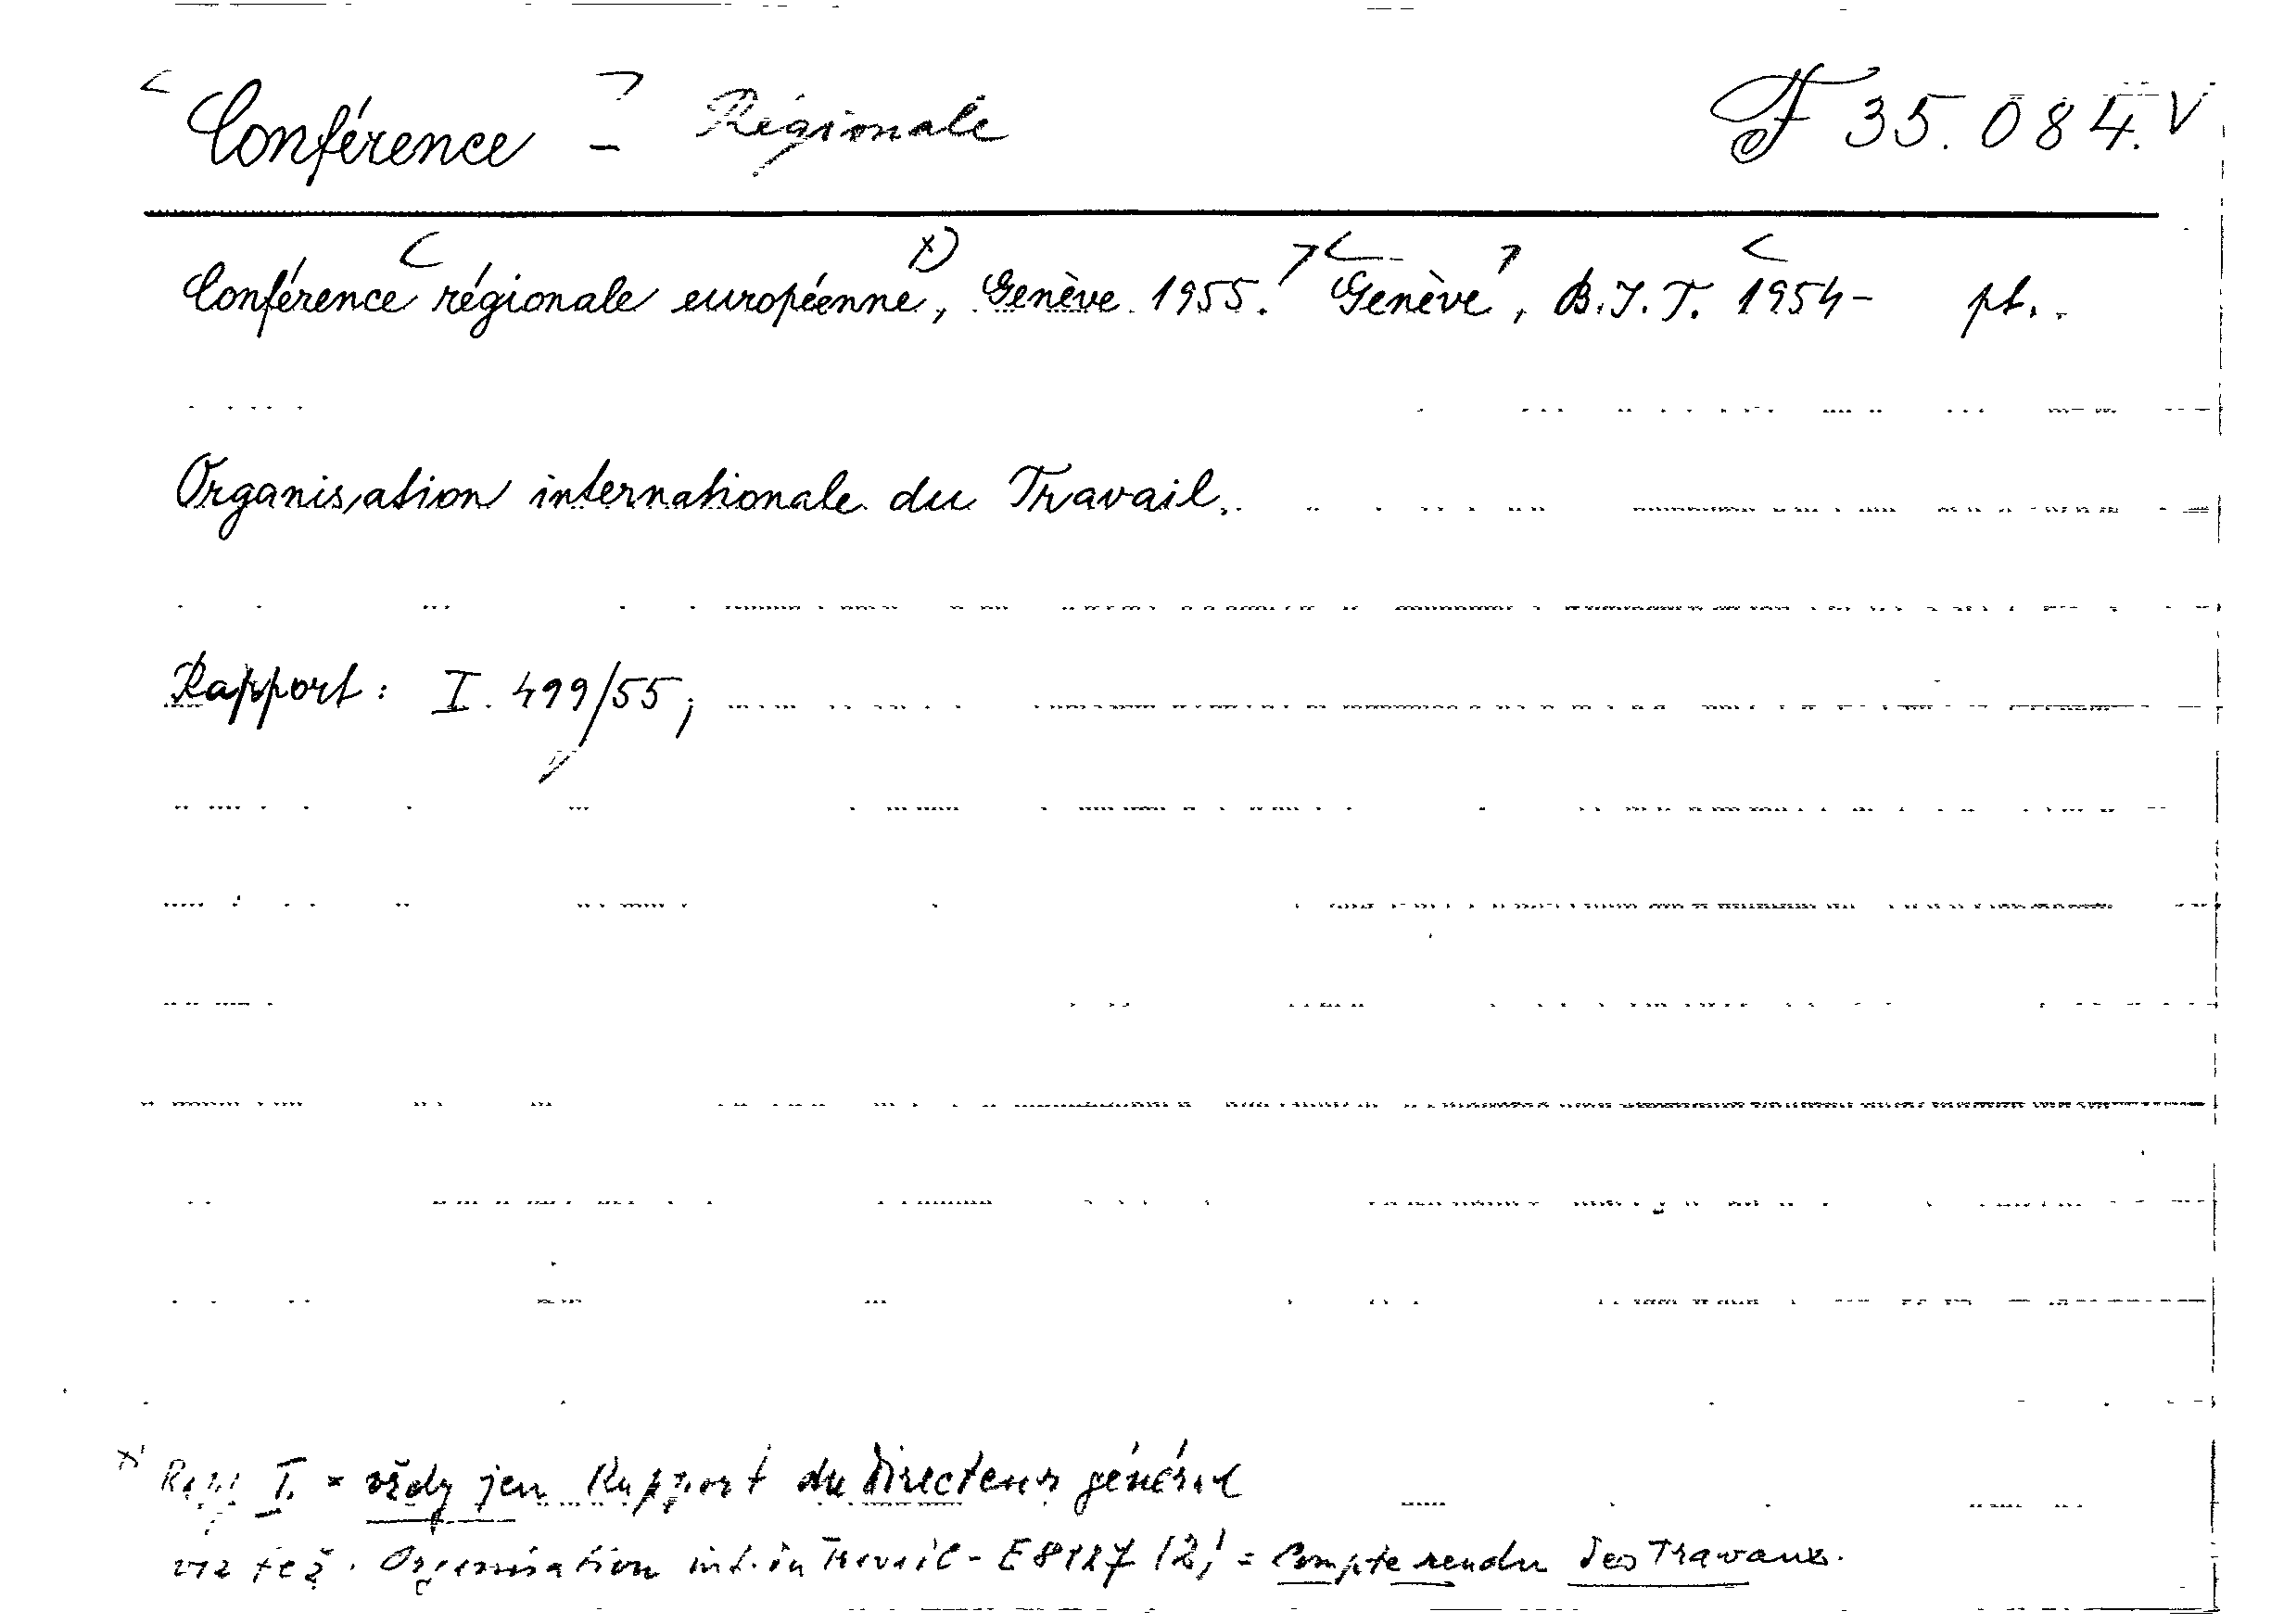 Conférence - Régionale F 35.084.V
Conférence régionale européenne, x) Genève 1955. Genève, B.I.T. 1954- pt..
Organisation internationale du Travail.
Rapport: I. 499/55;
x) Rapp I. = vždy jen Rapport du Directeur général
viz též. Organisation int. du Travail - E 8127 (2) = Compte rendu des Travaux.